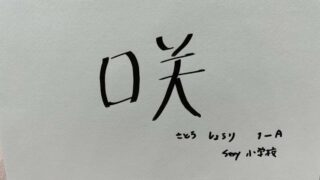 咲
さとう しょうり 1-A
小学校